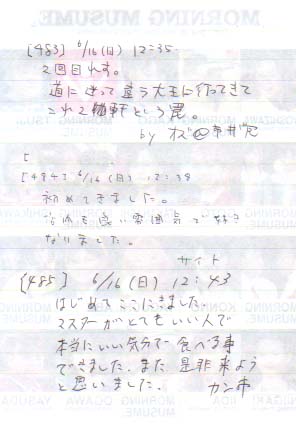 MORNING MUSUME.
[483] 6/16(日) 12:35
2回目れす。
道に迷って違う大王に行ってきて
これ2軒という罠。
by
[
[484] 6/16(日) 12:39
初めてきました。
雰囲気で好き
なりました。
サイト
[485] 6/16(日) 12:43
はじめてここにきました。
マスターがとてもいい人で
本当にいい気分で食べる事
できました。また是非来よう
と思いました。 カン木